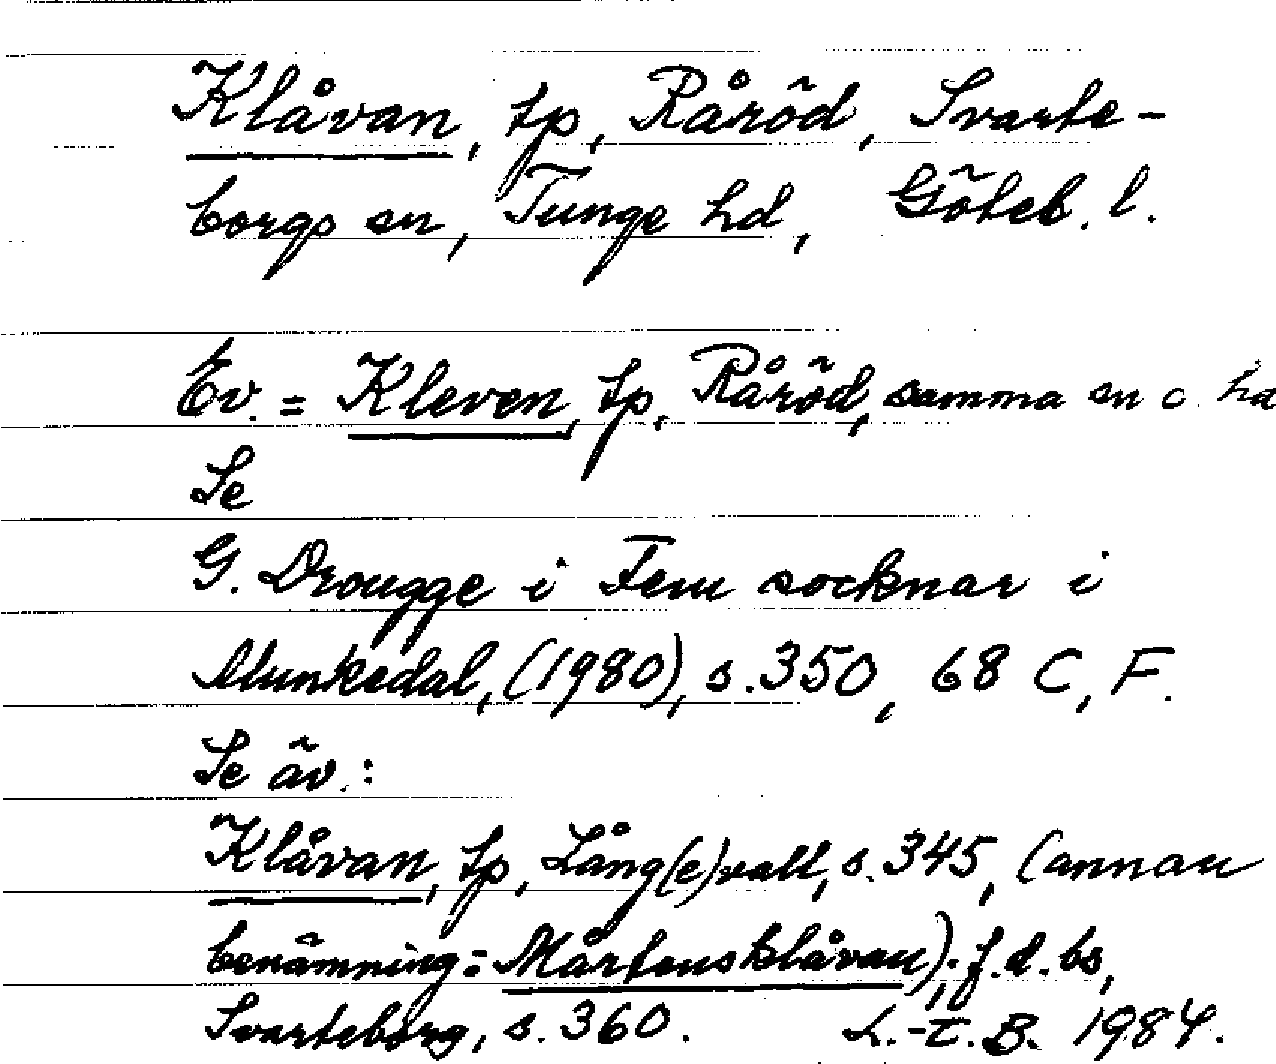 Klåvan, tp, Råröd, Svarte-
borgs sn, Tunge hd, Göteb. l.
Ev. = Kleven, tp, Råröd, samma sn o. hd
Se
G. Drougge i Fem socknar i
Munkedal, (1980), s. 350, 68 C, F.
Se äv.:
Klåvan, tp, Lång(e)vall, s. 345, (annan
benämning: Mårtensklåvan); f.d. bs,
Svarteborg, s. 360. L.-E. B. 1984.